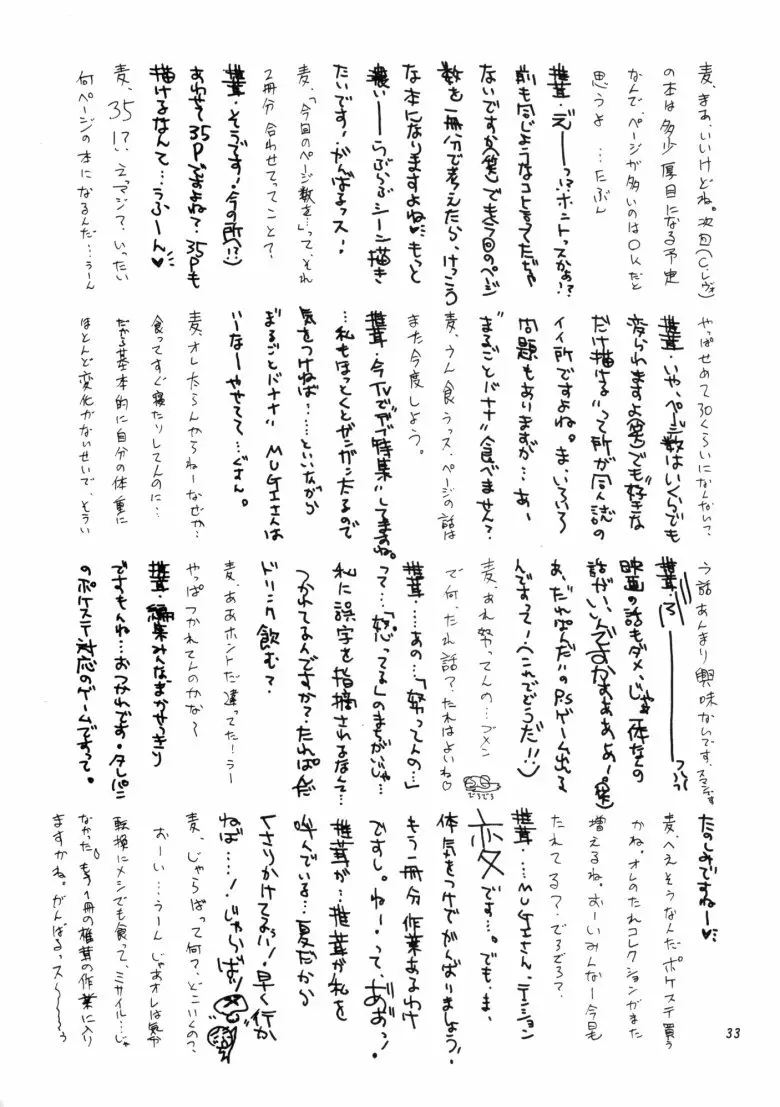 麦、まあ、いいけどね。次回(C.レヴォ)
の本は多少厚目になる予定
なんで、ページが多いのはOKだと
思うよ…たぶん
椎茸・えーーっ!?ホントっスかぁ!?
前も同じようなコト言ってたじゃ
ないですか(笑)でも今回のページ
数を一冊分で考えたら、けっこう
な本になりますよね♡もっと
濃いーーらぶらぶシーン描き
たいです!がんばるっス!
麦、「今回のページ数を…」って、それ
2冊分合わせてってこと?
椎茸・そうです!今の所(!?)
あわせて35Pですよね?35Pも
描けるなんて…うふーん♡
麦、35!?えっマジで、いったい
何ページの本になるんだ…うーん
やっぱせめて30くらいになんない?
椎茸・いや、ページ数はいくらでも
変られますよ(笑)でも〝好きな
だけ描ける〟って所が同人誌の
イイ所ですよね。ま、いろいろ
問題もありますが…あ、
〝まるごとバナナ〟食べません?
麦、うん食うっス、ページの話は
また今度しよう。
椎茸・今TVで〝デブ特集〟してますね。
…私もほっとくとガンガン太るので
気をつけねば……といいながら
〝まるごとバナナ〟MUGIさんは
いなーやせてて…ぐすん。
麦、オレ太らんからねーなぜか…
食ってすぐ寝たりしてんのに…
だから基本的に自分の体重に
ほとんど変化がないせいで、そうい
う話あんまり興味ないです、スマンです
椎茸・ろ〃ーーーー
映画の話もダメ、じゃぁ一体なんの
話がいいんですかぁぁぁぁ!(笑)
あ、〝たれぱんだ〟のPSゲーム出る
んですって!(これでどうだ!!)
麦、あれ努ってんの…ブメン
で何、たれ話?たれはよいね♡
でろでろ
椎茸……あの…「努ってんの…」
って…「怒ってる」のまちがいじゃ…
私に誤字を指摘されるなんて…
つかれてるんですか?たれぱんだ
ドリンク飲む?
麦、ああホントだ違ってた!うー
やっぱつかれてんのかな〜
椎茸・編集みんなまかせっきり
ですもんね…おつかれです・タレパン
のポケステ対応のゲームですって。
たのしみですねー♡
麦、へえそうなんだポケステ買う
かね。オレのたれコレクションがまた
増えるね。おーいみんなー今日も
たれてる?でろでろ?
椎茸・…MUGIさん、テーション
変です…。でも、ま、
体気をつけてがんばりましょう!
もう一冊分作業あるわけ
ですし。ねー・って、ああっ!
椎茸が…椎茸が私を
呼んでいる…夏だから
くさりかけてるぅ!早く行か
ねば…!じゃらば!
麦、じゃらばって何?、どこいくの?
おーい…うーんじゃあオレは気分
転換にメシでも食って、ミサイル…じゃ
なかった。もう1冊の椎茸の作業に入り
ますかね。がんばるっス〜〜〜
33